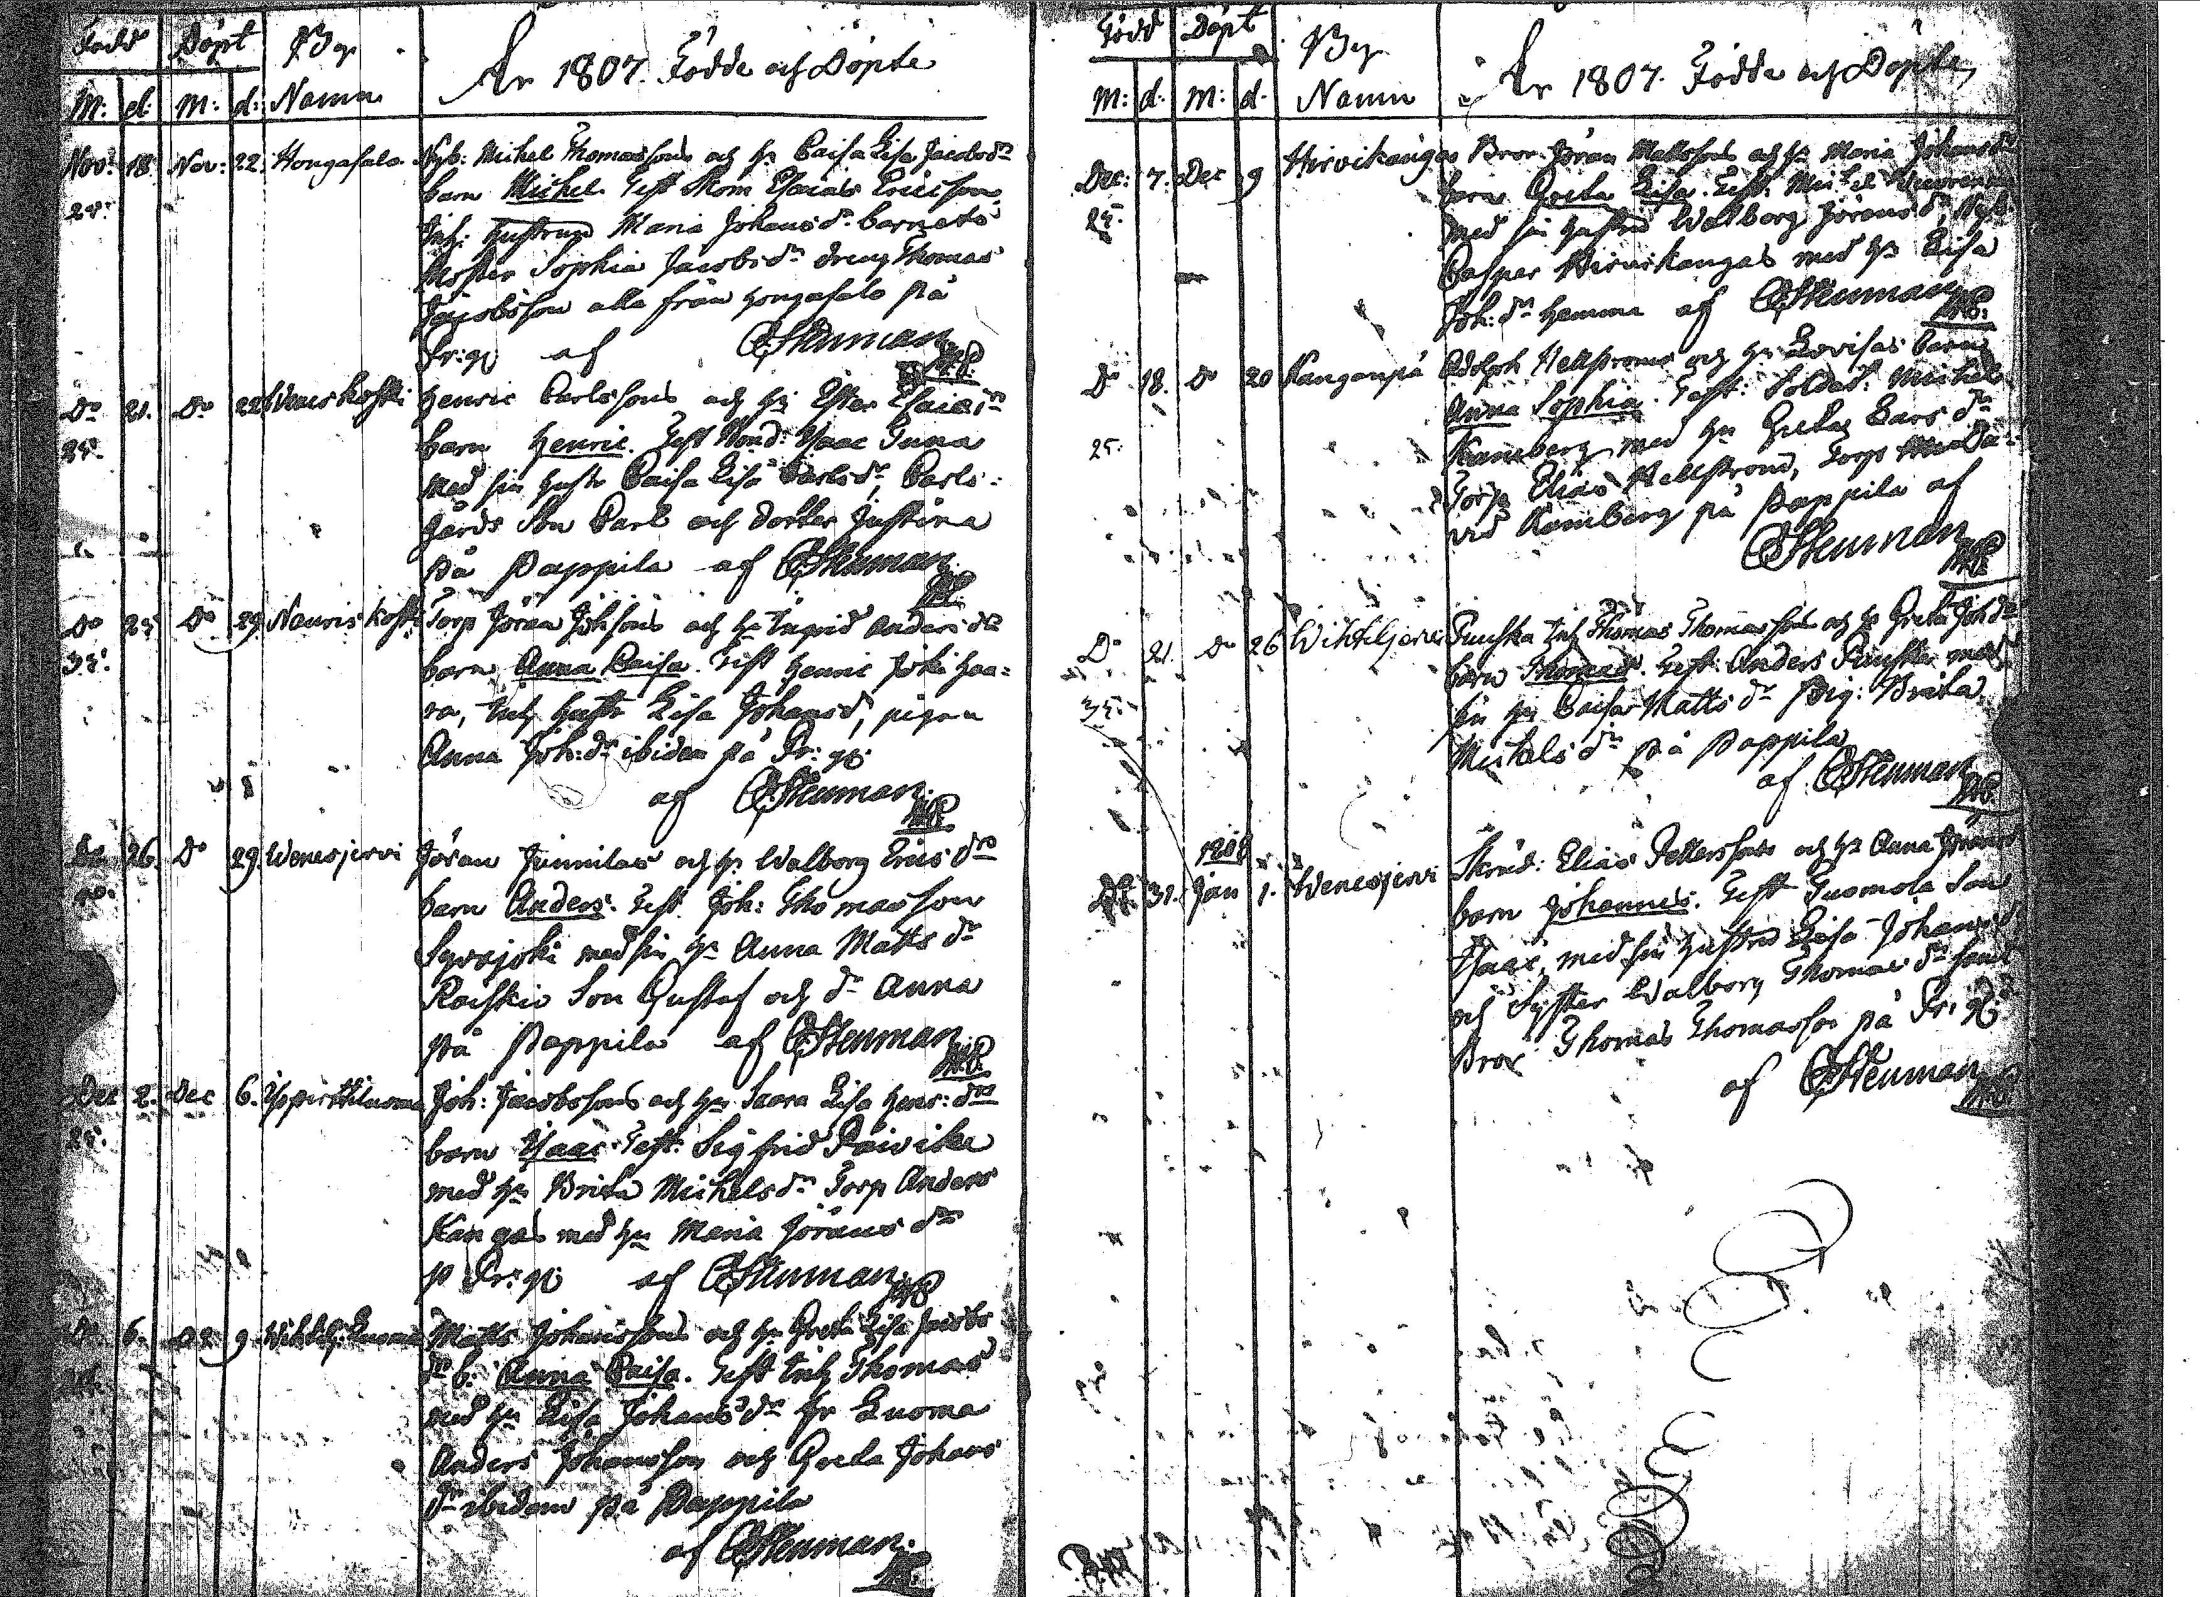 Född Döpt By
År 1807. Födde och Döpte
M: d: M: d: Namn
Nov: 18. Nov: 22. Hongasalo Nyb: Michel Thomassons och h: Caisa Lisa Jacobsdr
barn Michel. Test Skom Esaias Ericsson
28. Inh: hustrun Maria Johansdr barnets
Moster Sophia Jacobsdr dreng Thomas
Jacobsson alla från Hongasalo på
Pr:g: af CSteuman
Do 21. Do 22 Henric Carlssons och h: Ester Esaiædr
25. barn Henric. Test Isaac Tuna
med sin hustr Caisa Lisa Carlsdr, Carls-
gårds Son Carl och dotter Justina
på Pappila af CSteuman
Do 25 Do 29. Nauriskoski Torp Jöran Johssons och h: Ingrid Andersdr
35. barn Anna Caisa. Test Henric Joki haa-
ra, Inh hustr Lisa Johansd, pigan
Anna Joh:dr ibidem på Pr:g:
af CSteuman.
Do 26. Do 29. Wenesjervi Jöran Junnilas och h: Walborg Ericsdrs
40. barn Anders. Test Joh: Thomasson
Sywäjoki med sin h: Anna Mattsdr
Raiskio Son Gustaf och dr Anna
på Pappila af CSteuman
Dec 2. Dec 6. Joh: Jacobssons och h: Saara Lisa Henr:drs
25. barn Isaac. Test: Sigfrid Päivike
med h: Brita Michelsdr Torp Anders
Kangas med h: Maria Jöransdr
p Pr:g: af CSteuman
Do 6. Do 9. Matts Johanssons och h: Greta Lisa Jacobs
dr b: Anna Caisa. Test Inh Thomas
med h: Lisa Johansdr fr Luoma
Anders Johansson och Greta Johans
dr ibidem på Pappila
af CSteuman.
Född Döpt By
År 1807. Födde och Döpte
M: d. M: d. Namn
Dec: 7. Dec 9 Hirvikangas Bror Jöran Mattssons och h: Maria Johansdr
barn Greta Lisa. Test: Michel
25. med sin hustru Walborg Jöransdr, Nyb:
Casper Hirvikangas med h: Lisa
Joh:dr hemma af CSteuman
Do 18. Do 20 Kanganpä Adolph Hellströms och h: Lovisas barn
Anna Sophia. Test: Soldat: Michel
25. Kamberg med h: Greta Larsdr
Torp Elias Hellström, Torps
vid Kamberg på Pappila af
CSteuman
Do 21. Do 26 Wihteljervi Puuska Inh Thomas Thomassons och h: Greta Johdrs
barn Thomas. Test: Anders Puuska med
35. sin h: Caisa Mattsdr Pig: Brita
Michelsdr på Pappila
af CSteuman
1808
31. Jan 1. Wenesjervi Skräd: Elias Pettersons och h: Anna Jörans
barn Johannes. Test Tuomola Son
Isaac, med sin hustru Lisa Johansd
och Syster Walborg Thomasdr samt
Bror Thomas Thomasson på Pr:g:
af CSteuman